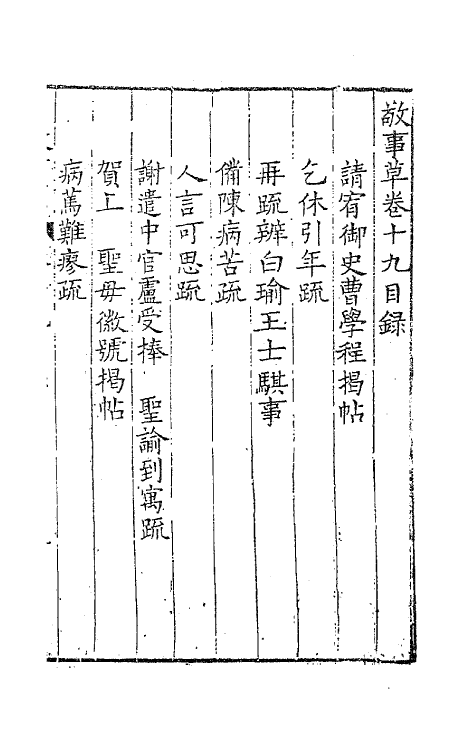 敬事草卷十九目録
請宥御史曹學程揭帖
乞休引年疏
再疏辨白瑜王士騏事
備陳病苦疏
人言可思疏
謝遣中官盧受捧　聖諭到寓疏
賀上　聖母徽號揭帖
病篤難瘳疏